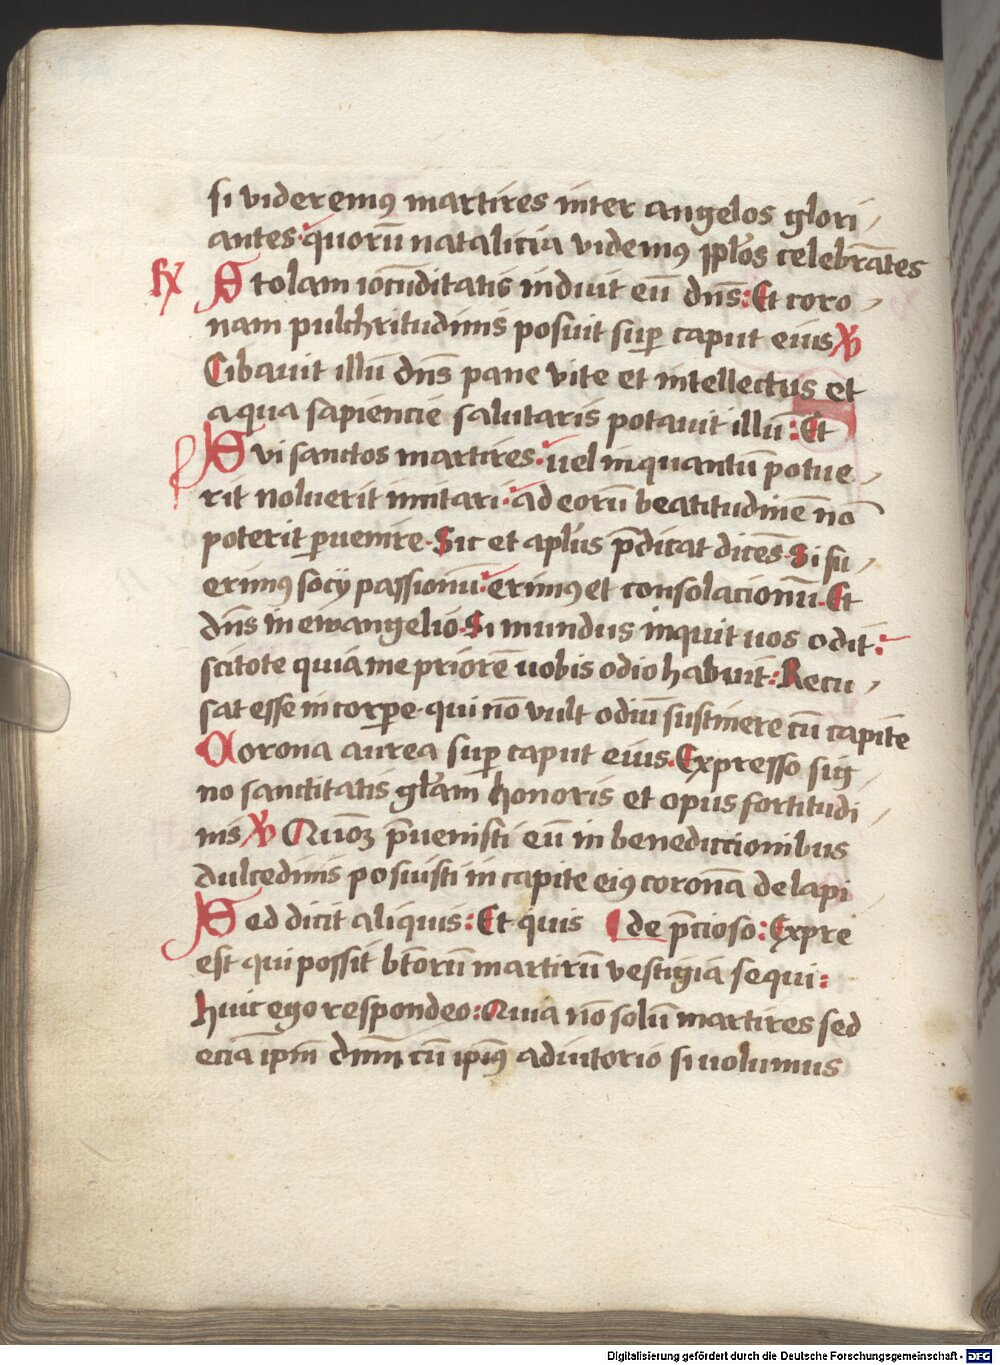 si videremꝰ martires inter angelos glori
antes quorū natalicia videmꝰ pplōs celebrātes
Rx Stolam iocūditatis induit eū dn̄s: Et coro
nam pulchritudinis posuit suꝑ caput eius ℣
Cibauit illū dn̄s pane vite et intellectus et
aqua sapiencie salutaris potauit illū: Et
Qui sanctos martires: uel inquantū potue
rit noluerit imitari: ad eorū beatitudinē nō
poterit ꝑuenire. Sic et aplūs p̄dicat dicēs. Si fu
erimꝰ socij passionū: erimꝰ et consolacionū. Et
dn̄s in ewangelio. Si mundus inquit uos odit:
scitote quia me priorē uobis odio habuit: Recu
sat esse in corꝑe qui nō vult odiū sustinere cū capite
Corona aurea suꝑ caput eius. Expresso sig
no sanctitatis glā̄m honoris et opus fortitudi
nis ℣ Quōꝫ p̄uenisti eū in benediccionibus
dulcedinis posuisti in capite eiꝰ coronā de lapi
Sed dicit aliquis: Et quis de p̄cioso: Expre
est qui possit bt̄orū martirū vestigia sequi:
huic ego respondeo: Quia nō solū martires sed
ecia ip̄m dn̄m cū ipiꝰ adiutorio si uolumus
Digitalisierung gefördert durch die Deutsche Forschungsgemeinschaft - DFG